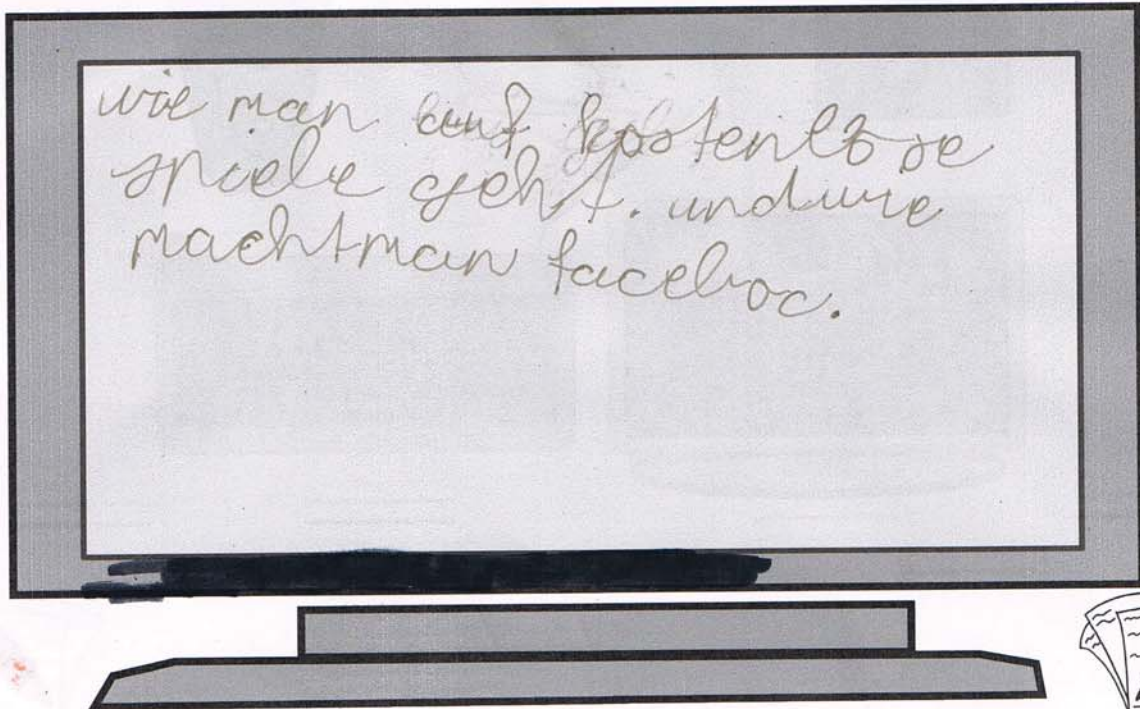 wie man auf kostenlose
spiele geht. und wie
macht man faceboc.